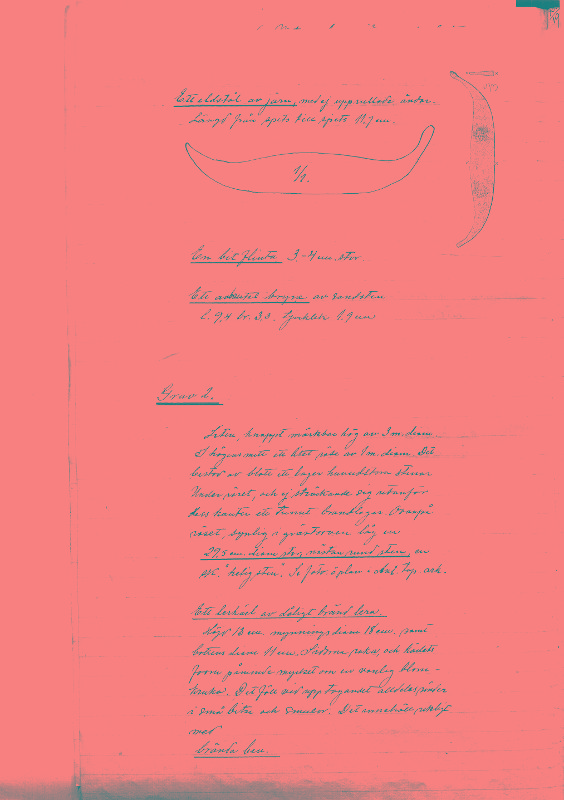 Ett eldstål av järn, med ej upprullade ändar.
Längd från spets till spets 11,7 cm.
1/1.
En bit flinta 3-4 cm. stor.
Ett avbrutet bryne av sandsten
l. 9,4 br. 3,0. tjocklek 1,9 cm
Grav 2.
Liten, knappt märkbar hög av 3 m. diam
I högens mitt ett litet röse av 1 m. diam. Det
bestod av blott ett lager hundstora stenar
Under röset, och ej sträckande sig utanför
dess kanter ett tunnt brandlager. Ovanpå
röset, synlig i grästorven låg en
29,5 cm. diam stor, nästan rund sten, en
s.k. "helig sten". Se foto o plan i Ant. top. ark.
Ett lerkärl av dåligt bränd lera.
Höjd 13 cm. mynningsdiam 18 cm. samt
bottens diam 11 cm. Sidorna raka, och kärlets
form påminde mycket om en vanlig blom-
kruka. Det föll vid upptagandet alldeles sönder
i små bitar och smulor. Det innehöll, jämte
med
brända ben.